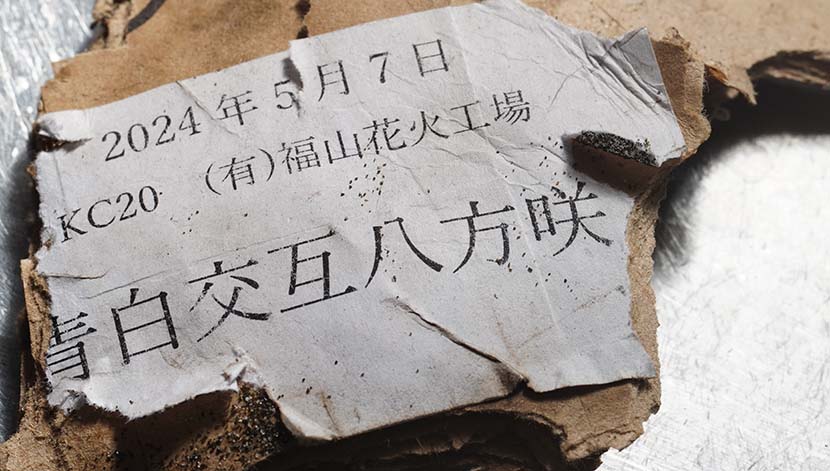 2024年5月7日
KC20 (有)福山花火工場
青白交互八方咲